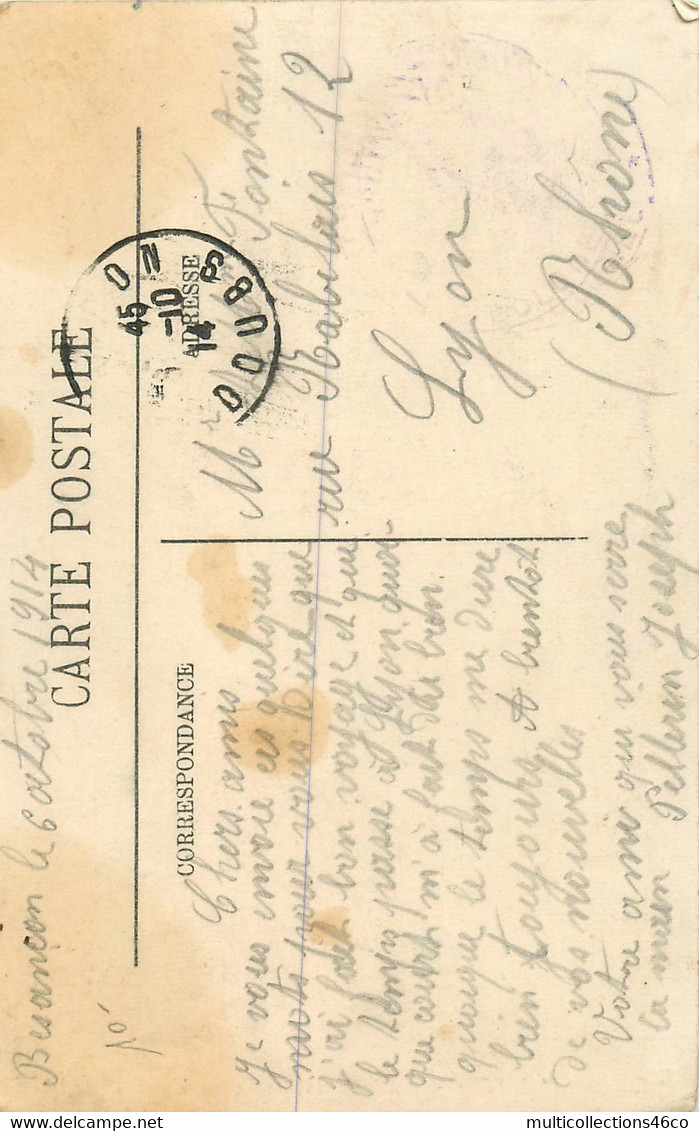 Besançon le 6 octobre 1914
CARTE POSTALE
CORRESPONDANCE
ADRESSE
Chers amis
Je vous envoie ces quelques
mots pour vous dire que
J'ai fait bon voyage et que
le temps passé à Lyon quoi
que court m'a fait du bien
quoique le temps me dure
bien toujours A bientôt
de vos nouvelles
Votre ami qui vous serre
la main Pellerin Joseph
Mr Fontaine
rue Rabelais 12
Lyon
(Rhône)
ON
45
-10
14
DOUBS
multicollections46co